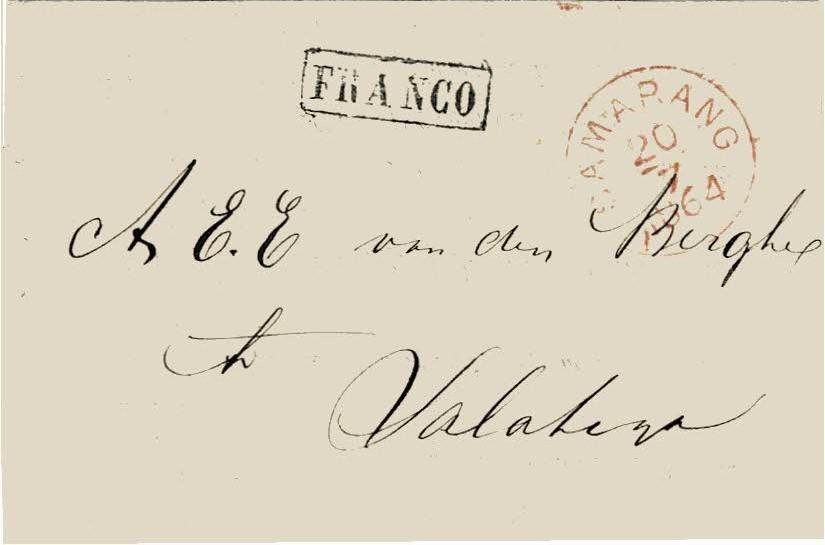 FRANCO
SAMARANG
20
1864
A E. E van den Berghe
te
Salatiga